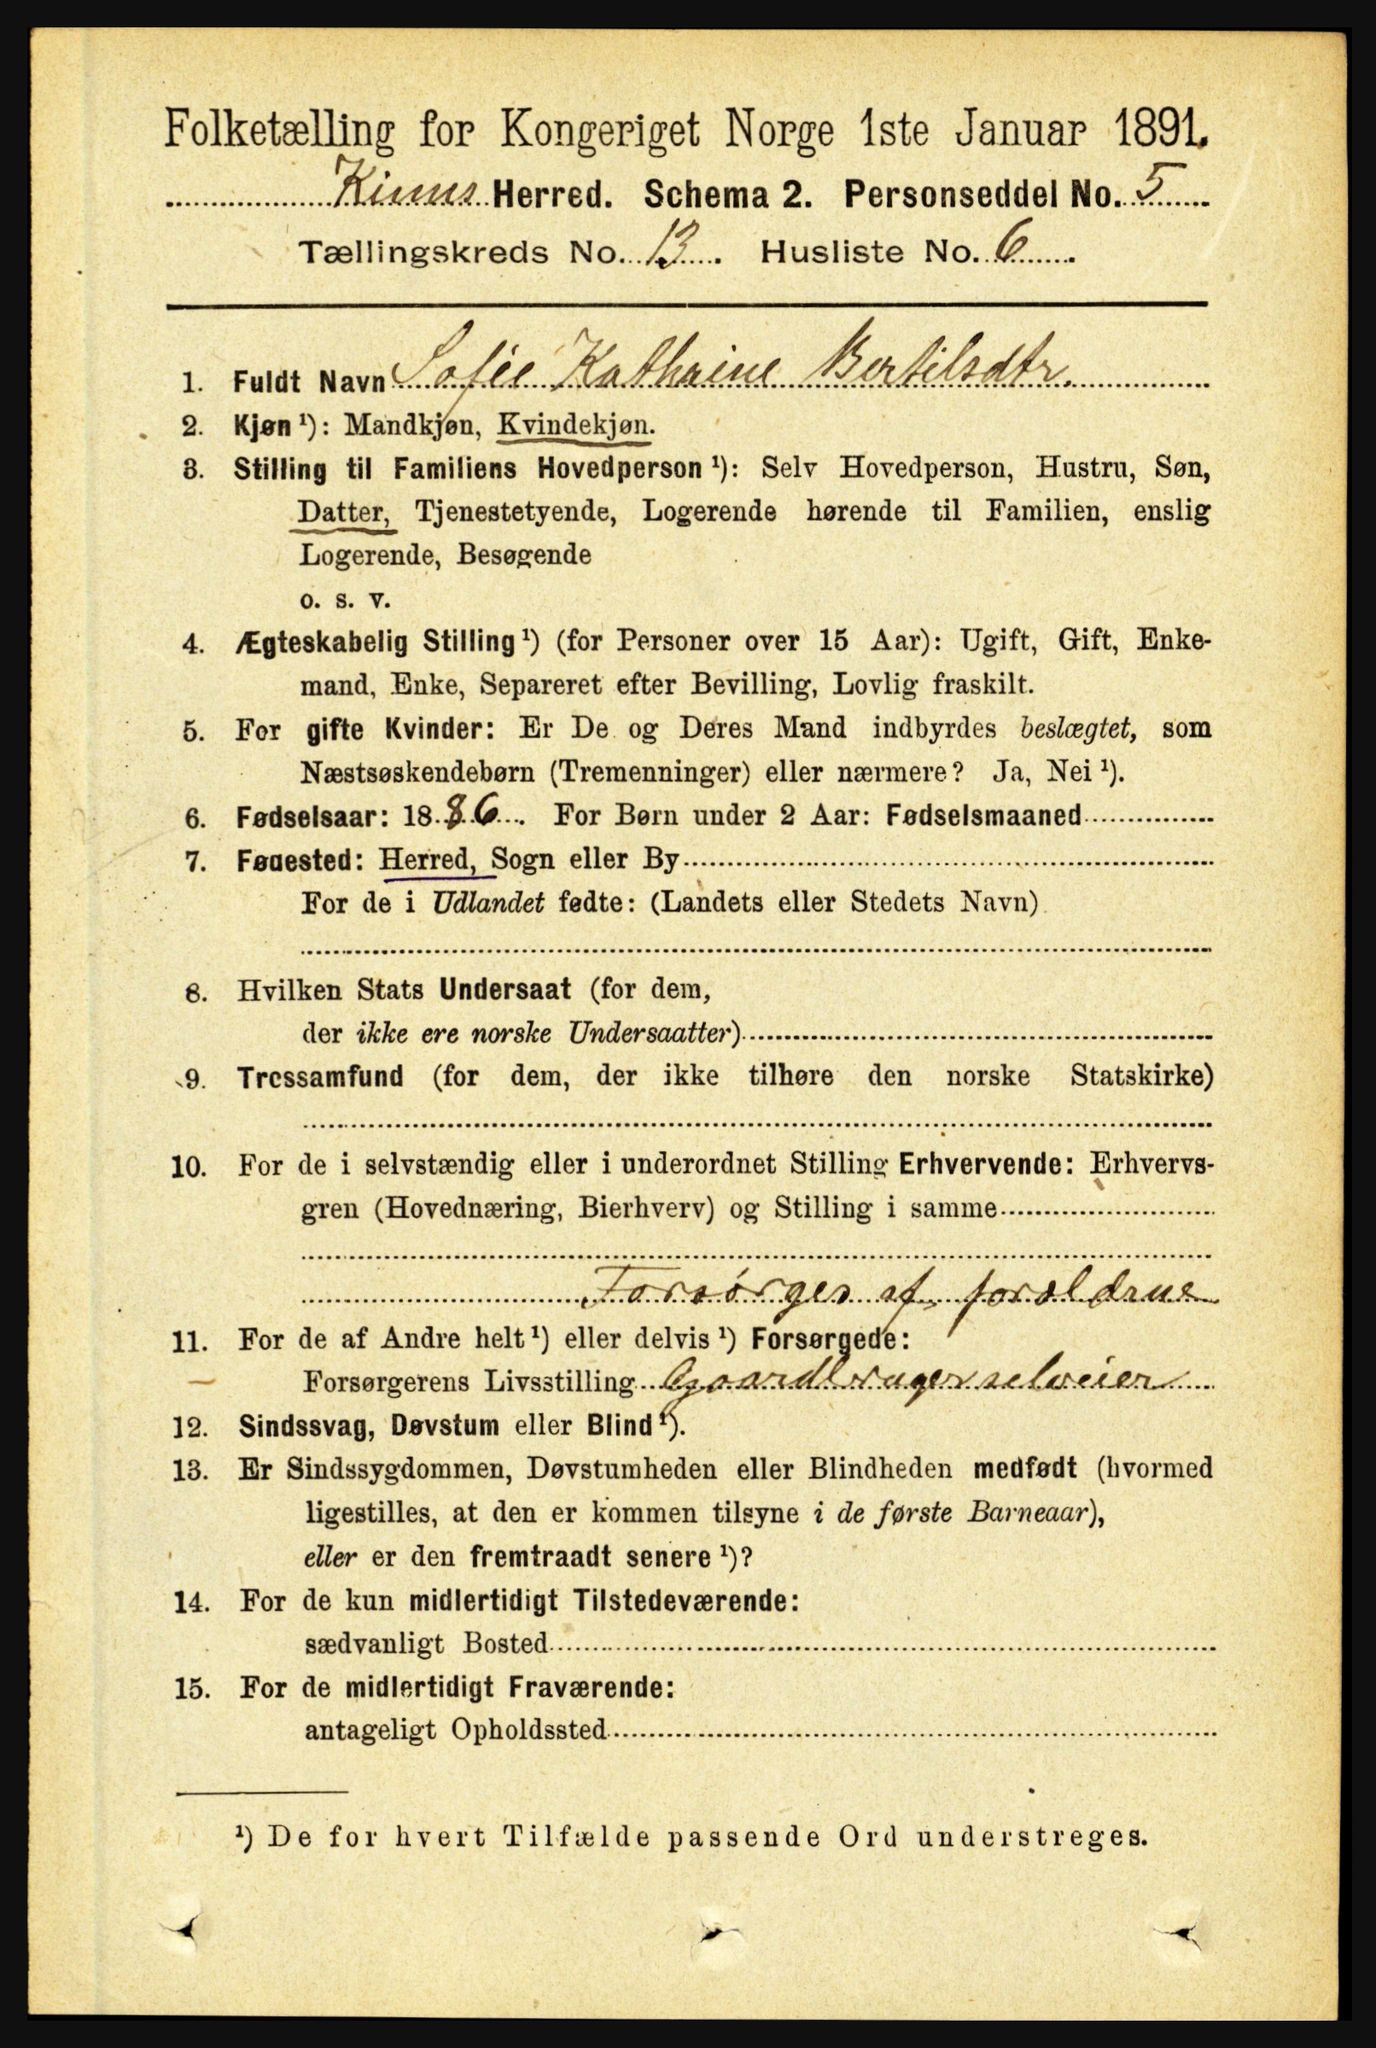 Folketælling for Kongeriget Norge 1ste Januar 1891.
Kinns Herred. Schema 2. Personseddel No. 5
Tællingskreds No. 13. Husliste No. 6
1. Fuldt Navn Sofie Kathrine Bertilsdtr.
2. Kjøn ¹): Mandkjøn, Kvindekjøn.
3. Stilling til Familiens Hovedperson ¹): Selv Hovedperson, Hustru, Søn,
Datter, Tjenestetyende, Logerende hørende til Familien, enslig
Logerende, Besøgende
o. s. v.
4. Ægteskabelig Stilling ¹) (for Personer over 15 Aar): Ugift, Gift, Enke-
mand, Enke, Separeret efter Bevilling, Lovlig fraskilt.
5. For gifte Kvinder: Er De og Deres Mand indbyrdes beslægtet, som
Næstsøskendebørn (Tremenninger) eller nærmere? Ja, Nei ¹).
6. Fødselsaar: 1886. For Børn under 2 Aar: Fødselsmaaned
7. Fødested: Herred, Sogn eller By
For de i Udlandet fødte: (Landets eller Stedets Navn)
8. Hvilken Stats Undersaat (for dem,
der ikke ere norske Undersaatter)
9. Trossamfund (for dem, der ikke tilhøre den norske Statskirke)
10. For de i selvstændig eller i underordnet Stilling Erhvervende: Erhvervs-
gren (Hovednæring, Bierhverv) og Stilling i samme
Forsørges af foreldrene
11. For de af Andre helt ¹) eller delvis ¹) Forsørgede:
Forsørgerens Livsstilling Gaardbruger selveier
12. Sindssvag, Døvstum eller Blind ¹).
13. Er Sindssygdommen, Døvstumheden eller Blindheden medfødt (hvormed
ligestilles, at den er kommen tilsyne i de første Barneaar),
eller er den fremtraadt senere ¹)?
14. For de kun midlertidigt Tilstedeværende:
sædvanligt Bosted
15. For de midlertidigt Fraværende:
antageligt Opholdssted
¹) De for hvert Tilfælde passende Ord understreges.